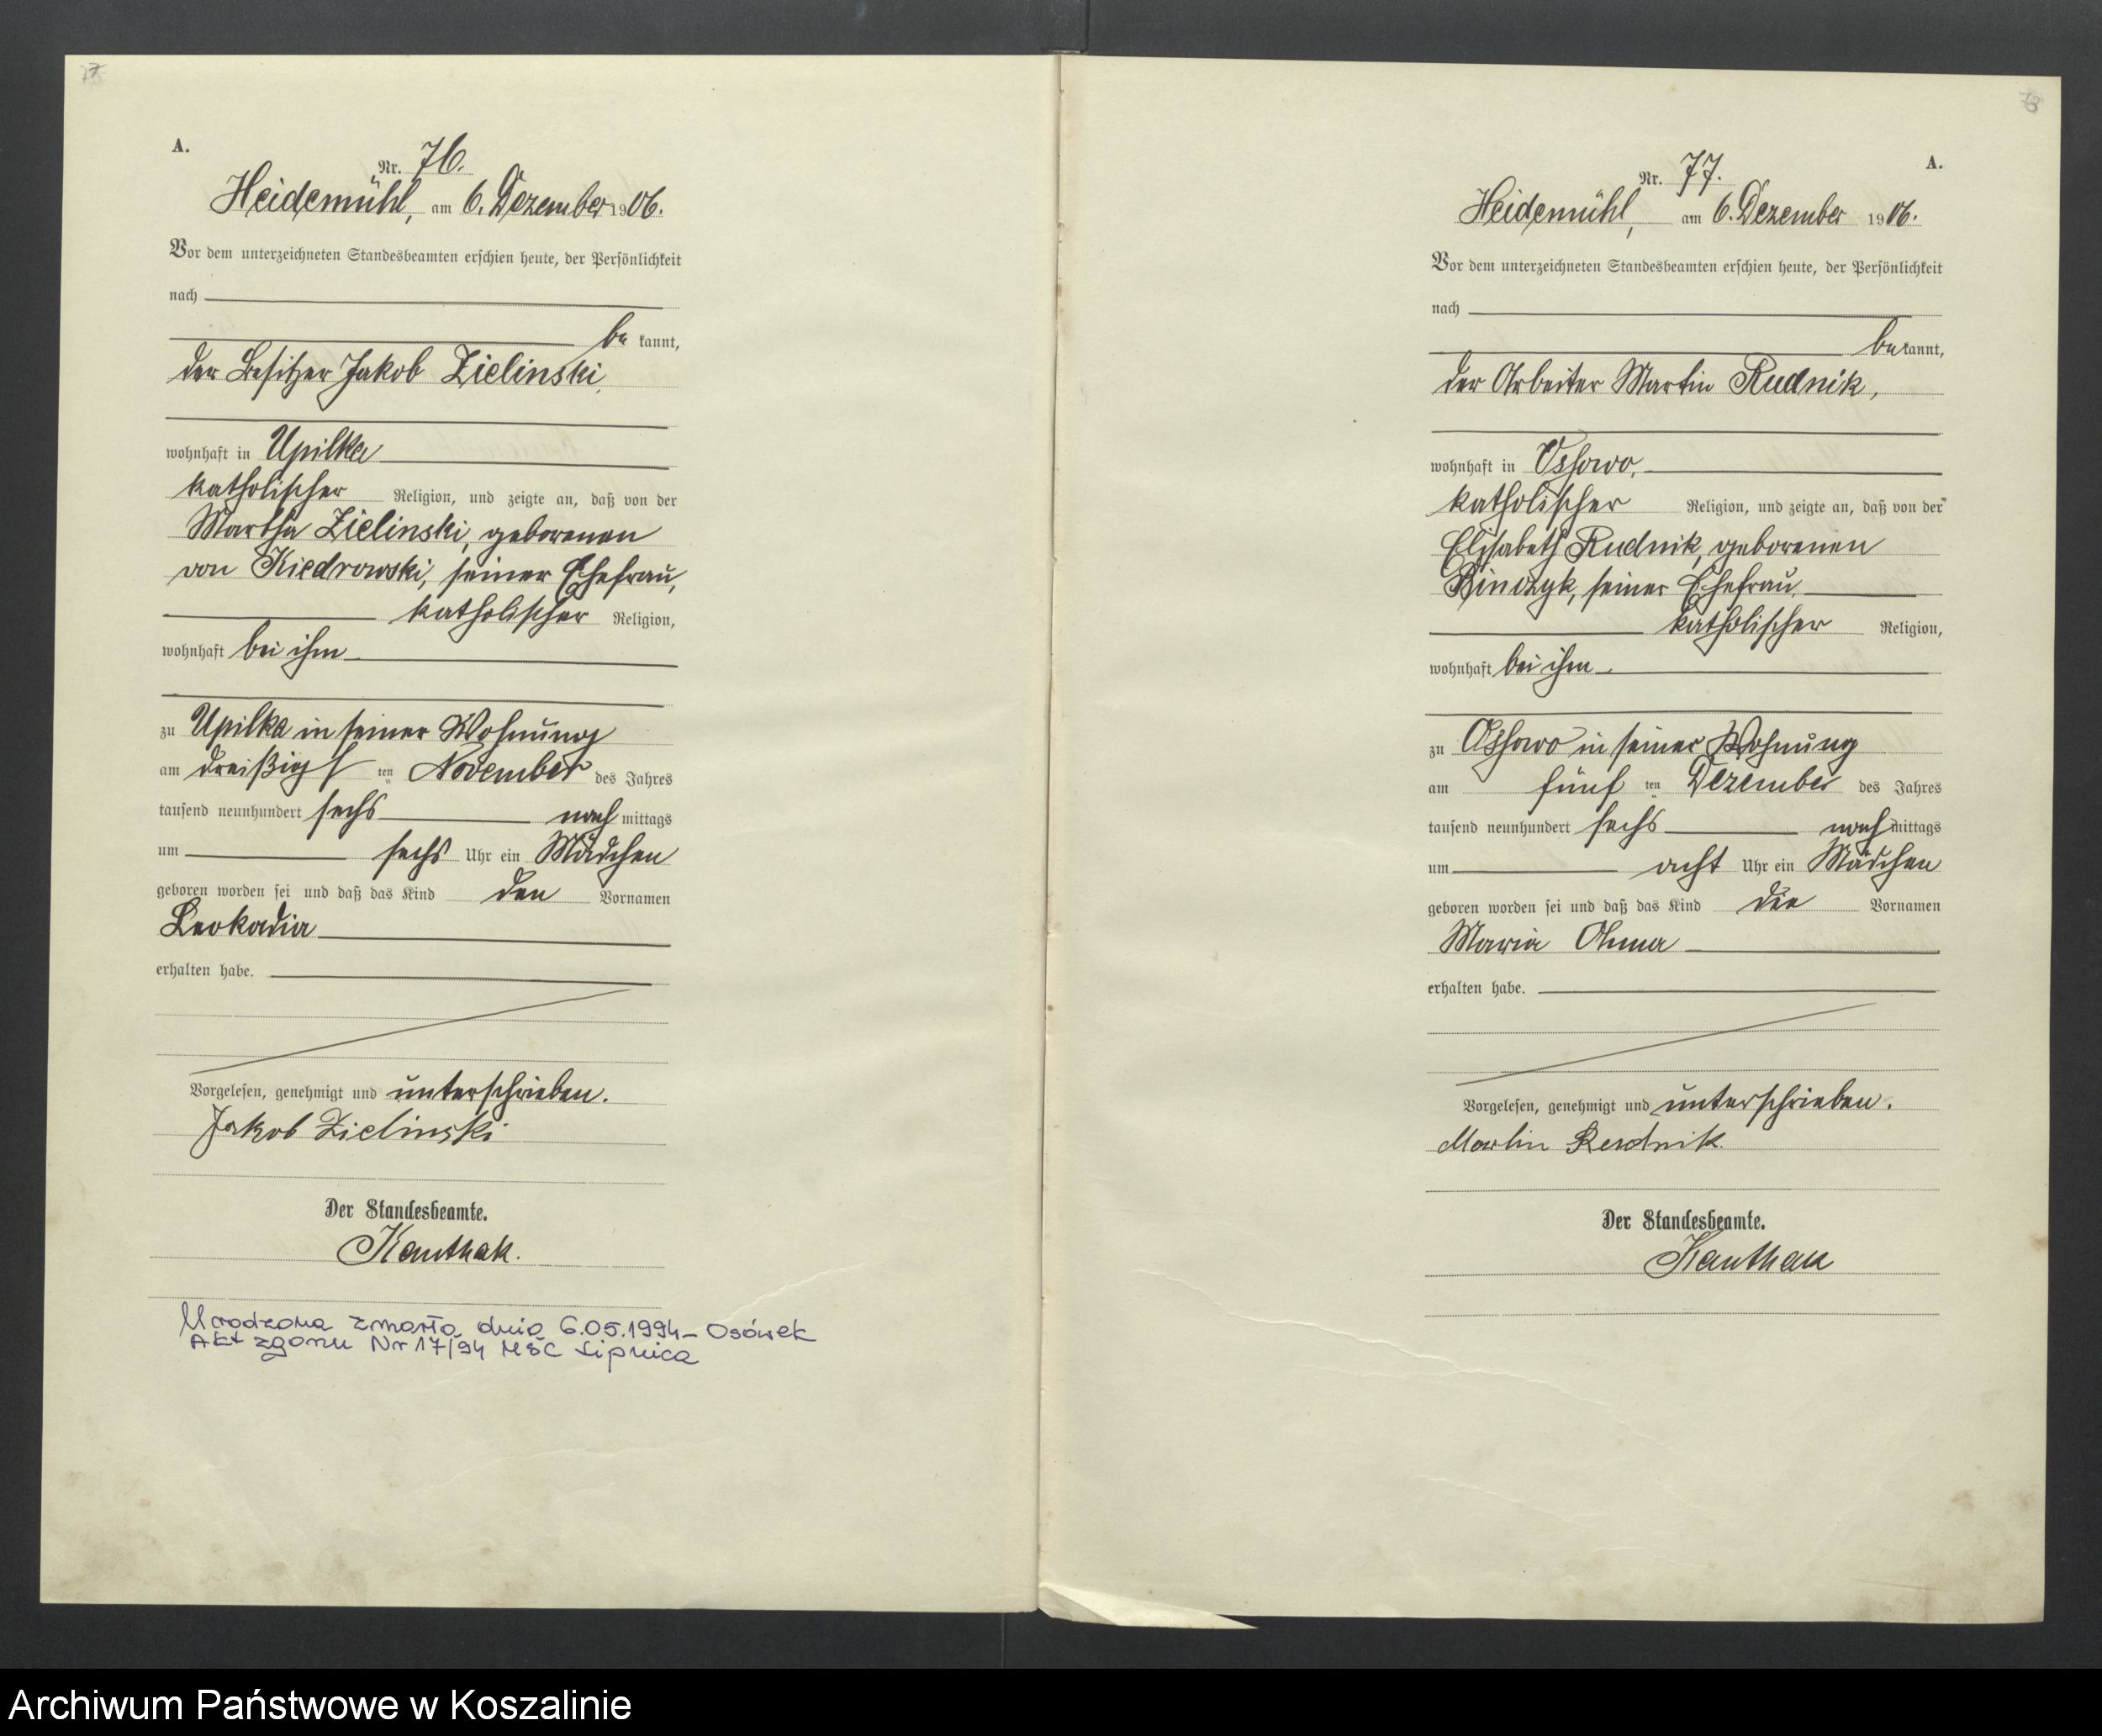 77
A.
Nr. 76.
Heidemühl, am 6. Dezember 1906.
Vor dem unterzeichneten Standesbeamten erschien heute, der Persönlichkeit
nach
be kannt,
der Besitzer Jakob Zielinski,
wohnhaft in Upilka
katholischer Religion, und zeigte an, daß von der
Martha Zielinski, geborenen
von Kiedrowski, seiner Ehefrau,
katholischer Religion,
wohnhaft bei ihm
zu Upilka in seiner Wohnung
am dreißigs ten November des Jahres
tausend neunhundert sechs nach mittags
um sechs Uhr ein Mädchen
geboren worden sei und daß das Kind den Vornamen
Leokadia
erhalten habe.
Vorgelesen, genehmigt und unterschrieben.
Jakob Zielinski
Der Standesbeamte.
Kanthak.
Urodzona zmarła dnia 6.05.1994 - Osówek
Akt zgonu Nr 17/94 USC Lipnica
78
A.
Nr. 77.
Heidemühl, am 6. Dezember 1906.
Vor dem unterzeichneten Standesbeamten erschien heute, der Persönlichkeit
nach
be kannt,
der Arbeiter Martin Rudnik,
wohnhaft in Ossowo,
katholischer Religion, und zeigte an, daß von der
Elisabeth Rudnik, geborenen
seiner Ehefrau,
katholischer Religion,
wohnhaft bei ihm
zu Ossowo in seiner Wohnung
am fünf ten Dezember des Jahres
tausend neunhundert sechs nach mittags
um acht Uhr ein Mädchen
geboren worden sei und daß das Kind die Vornamen
Maria Anna
erhalten habe.
Vorgelesen, genehmigt und unterschrieben.
Martin Rudnik.
Der Standesbeamte.
Kanthak
Archiwum Państwowe w Koszalinie